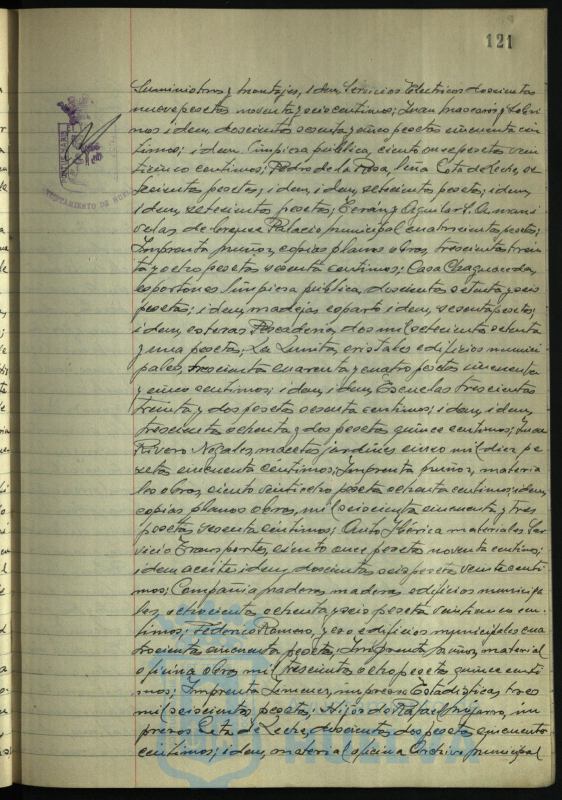 121
Suministros y montajes, idem Servicios Electricos doscientas
nueve pesetas noventa y ocio centimos; Juan mascaros y Sobri-
nos idem, doscientas sesenta y cinco pesetas cincuenta cen-
timos; idem limpieza pública, ciento once pesetas vein
ticinco centimos; Pedro de la Rosa, leña Gota de Leche, se-
tecientas pesetas; idem, idem, setecientas pesetas; idem,
idem, setecientas pesetas; Terán y Aguilar S.
Palacio municipal cuatrocientas pesetas;
Imprenta muñoz, copias planos obras, trescientas trein
ta y ocho pesetas sesenta centimos; Casa
esportones limpieza pública, doscientas setenta y seis
pesetas; idem, madejas esparto idem, sesenta pesetas;
idem, esteras Pescadería, dos mil setecientas setenta
y una pesetas; La Lunita, cristales edificios munici-
pales, trescientas cuarenta y cuatro pesetas cincuenta
y cinco centimos; idem, idem Escuelas trescientas
treinta y dos pesetas sesenta centimos; idem, idem,
trescientas ochenta y dos pesetas quince centimos; Juan
Rivero Nogales, macetas jardines cinco mil diez pe
setas cincuenta céntimos; Imprenta muñoz, materia
les obras, ciento veintiocho pesetas ochenta centimos; idem,
copias planos obras, mil seiscientas cincuenta y tres
pesetas sesenta centimos; Auto Ibérica materiales Ser
vicio Transportes, ciento once pesetas noventa centimos;
idem aceite idem, doscientas seis pesetas veinte centi
mos; Compañia maderas, maderas edificios municipa-
les, ochocientas ochenta y seis pesetas veinticinco cen-
timos; Federico Romero, yeso edificios municipales cua
trocientas cincuenta pesetas; Imprenta muñoz, material
oficina obras, mil trescientas ocho pesetas quince centi
mos; Imprenta Jimenez, impresos Estadistica, trece
mil seiscientas pesetas; Hijos de Rafael im
presos Gota de Leche, doscientas dos pesetas cincuenta
centimos; idem, material oficina Archivo municipal
AYUNTAMIENTO DE HUELVA
HUELVA